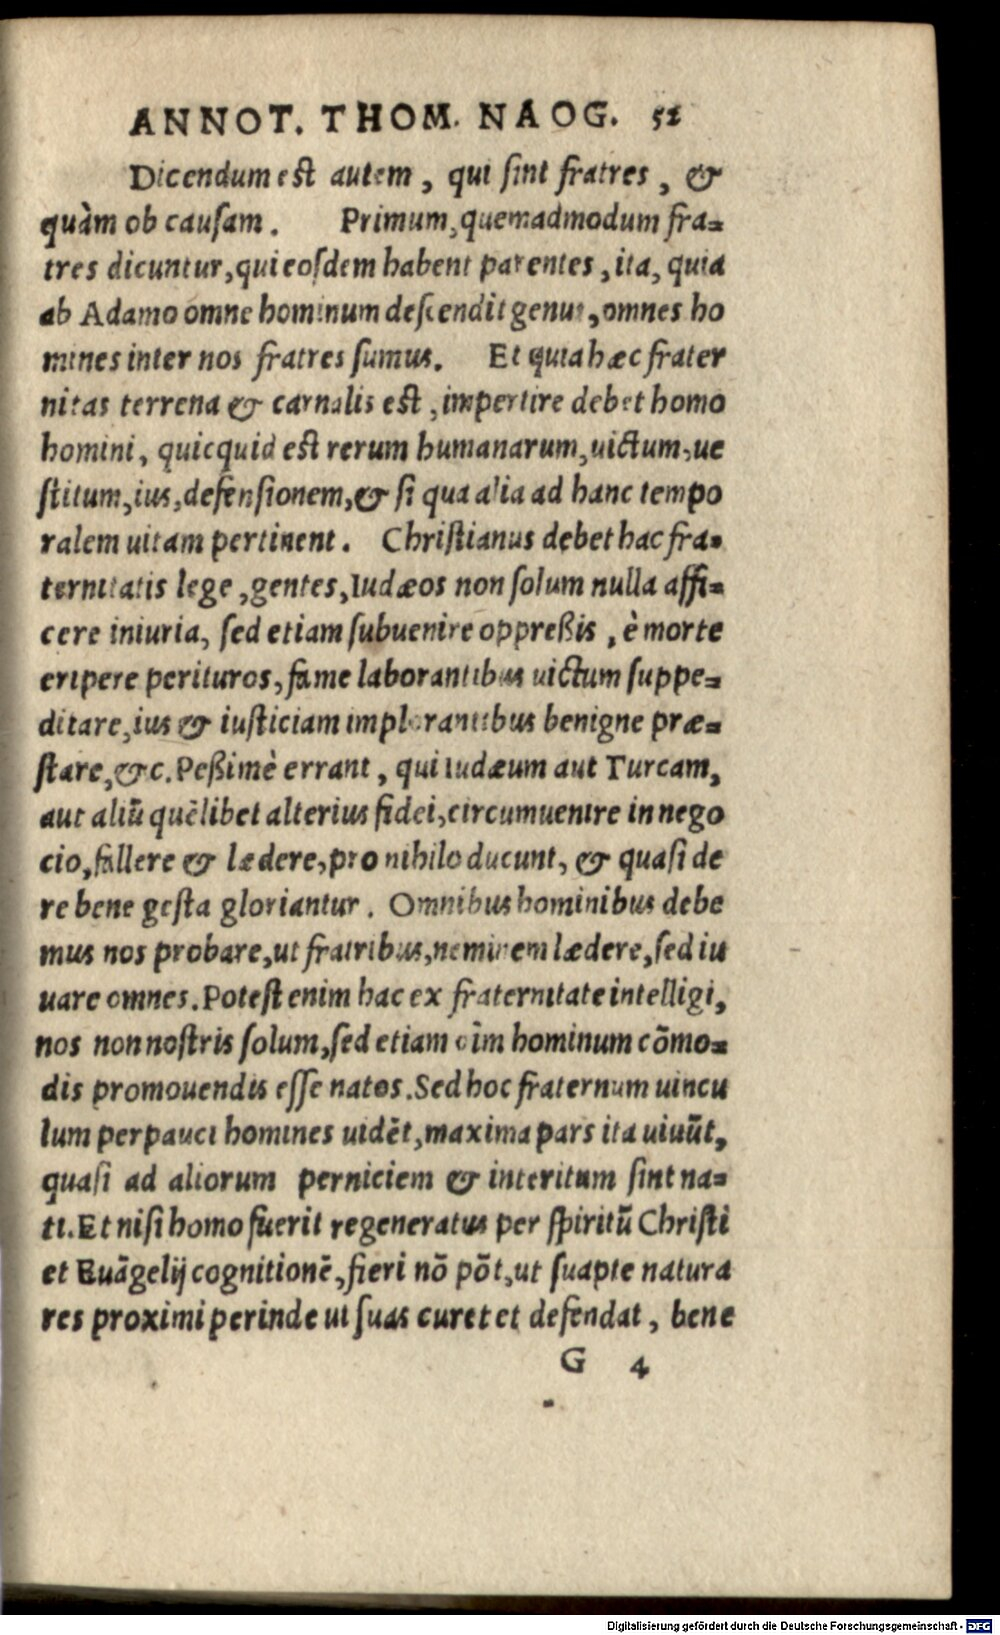 ANNOT. THOM. NAOG. 52
Dicendum est autem, qui sint fratres, &
quàm ob causam. Primum, quemadmodum fra=
tres dicuntur, qui eosdem habent parentes, ita, quia
ab Adamo omne hominum descendit genus, omnes ho
mines inter nos fratres sumus. Et quia hæc frater
nitas terrena & carnalis est, impertire debet homo
homini, quicquid est rerum humanarum, uictum, ue
stitum, ius, defensionem, & si qua alia ad hanc tempo
ralem uitam pertinent. Christianus debet hac fra=
ternitatis lege, gentes, Iudæos non solum nulla affi=
cere iniuria, sed etiam subuenire oppreßis, è morte
eripere perituros, fame laborantibus uictum suppe=
ditare, ius & iusticiam implorantibus benigne præ=
stare, &c. Peßimè errant, qui iudæum aut Turcam,
aut aliũ quẽlibet alterius fidei, circumuenire in nego
cio, fallere & lædere, pro nihilo ducunt, & quasi de
re bene gesta gloriantur. Omnibus hominibus debe
mus nos probare, ut fratribus, neminem lædere, sed iu
uare omnes. Potest enim hac ex fraternitate intelligi,
nos non nostris solum, sed etiam oĩm hominum cõmo=
dis promouendis esse natos. Sed hoc fraternum uincu
lum perpauci homines uidẽt, maxima pars ita uiuũt,
quasi ad aliorum perniciem & interitum sint na=
ti. Et nisi homo fuerit regeneratus per spiritũ Christi
et Euãgelij cognitionẽ, fieri nõ põt, ut suapte natura
res proximi perinde ut suas curet et defendat, bene
G 4
Digitalisierung gefördert durch die Deutsche Forschungsgemeinschaft - DFG